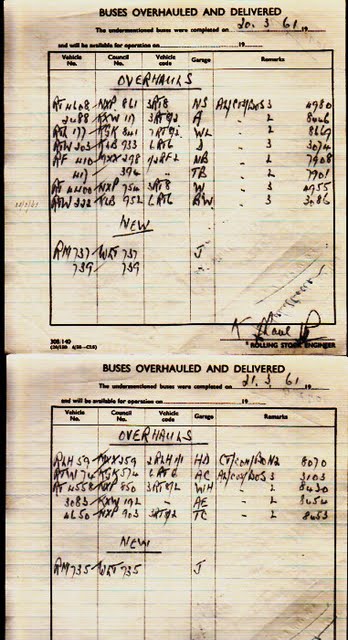 BUSES OVERHAULED AND DELIVERED
The undermentioned buses were completed on 20.3.61 19
and will be available for operation on 19
Vehicle No. Council No. Vehicle code Garage Remarks
OVERHAULS
RT 4608 NXP 861 3RT8 NS 3 4980
2688 KXW 117 A " 2
RTL 177 KGK 841 WL " 2 8669
RTW 203 KLB 933 6RT6 J " 3 3074
RF 410 MXX 298 NB " 2 7908
417 394 " TB " 2 7901
RT NXP 754 3RT8 W " 3 4955
RTW 322 KLB 952 6RT6 BW " 3 3086
NEW
RM 737 WLT 737 J
739 739
308/140
ROLLING STOCK ENGINEER
BUSES OVERHAULED AND DELIVERED
The undermentioned buses were completed on 21.3.61 19
and will be available for operation on 19
Vehicle No. Council No. Vehicle code Garage Remarks
OVERHAULS
RLH 59 MXX 259 2RLH1/1 HD 8070
RTW 74 KGK 574 6RT6 AC 3 3103
RT 4558 NXP 850 WH " 2 8430
3083 KXW 192 " AE " 2
4650 NXP 903 TC " 2 8453
NEW
RM 735 WLT 735 J